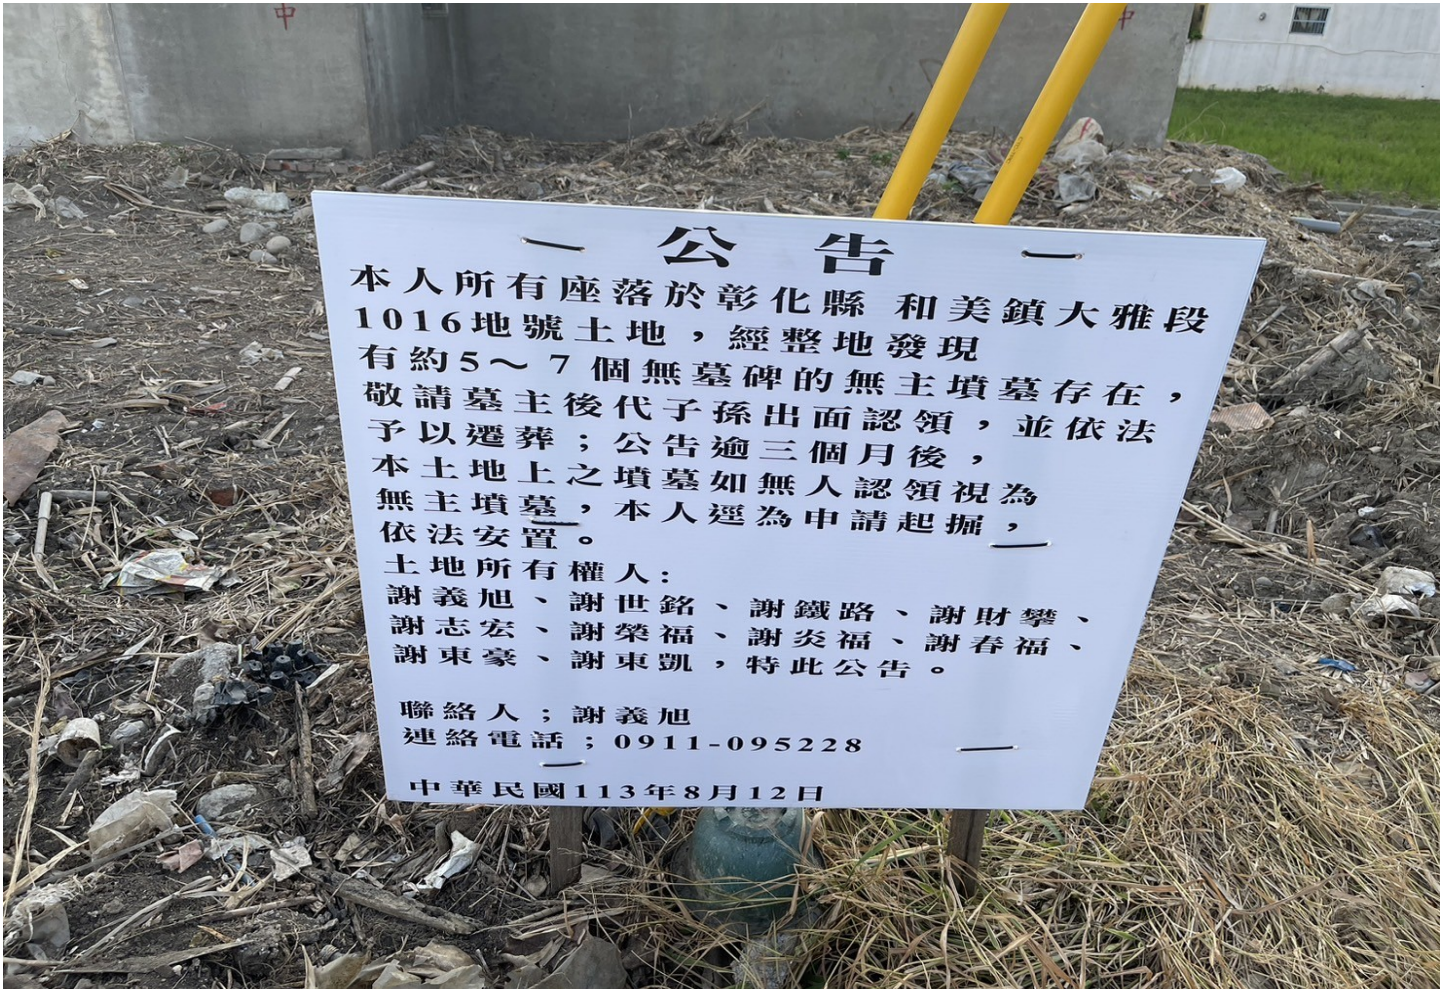 中
中
公告
本人所有座落於彰化縣 和美鎮大雅段
1016地號土地，經整地發現
有約5～7個無墓碑的無主墳墓存在，
敬請墓主後代子孫出面認領，並依法
予以遷葬；公告逾三個月後，
本土地上之墳墓如無人認領視為
無主墳墓，本人逕為申請起掘，
依法安置。
土地所有權人：
謝義旭、謝世銘、謝鐵路、謝財攀、
謝志宏、謝榮福、謝炎福、謝春福、
謝東豪、謝東凱，特此公告。
聯絡人；謝義旭
連絡電話；0911-095228
中華民國113年8月12日